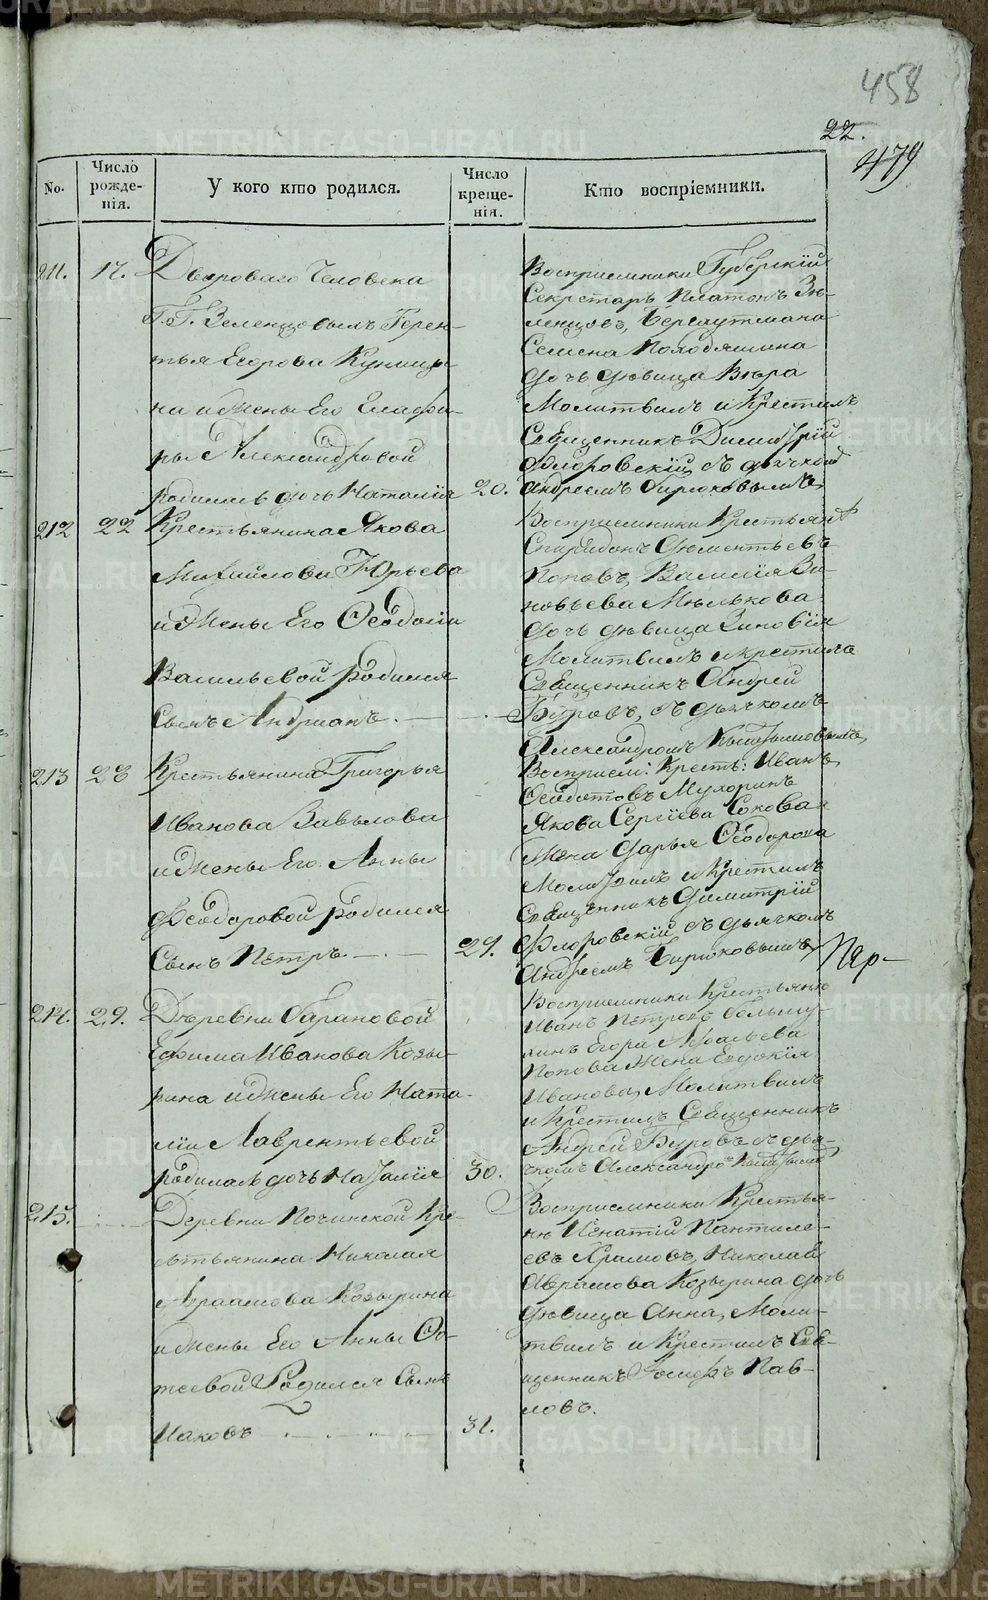 458
22.
479
No.
Число рожде-нія.
У кого кто родился.
Число креще-нія.
Кто воспріемники.
211.
17.
Двороваго Человека
Г. Г. Зеленцовымъ Терен-
тья Егорова Куницы-
на и Жены Его Глафи-
ры Александровой
родилась дочь Наталія
20.
Воспріемники Губернскій
Секретарь Платонъ Зе-
ленцовъ, Бергаутмана
Семена Колобяшина
дочь девица Вера
Молитвилъ и Крестилъ
Священникъ Димитрій
Флоровскій, съ дьячкомъ
Андреемъ Бирюковымъ
212
22
Крестьянина Якова
Михайлова Юрьева
и Жены Его Ѳеодосіи
Васильевой родился
Сынъ Андрианъ.
Воспріемники Крестьян:
Спиридонъ Дементьевъ
Поповъ, Василія Зи-
новьева Мелькова
дочь девица Зиновія
Молитвилъ и крестилъ
Священникъ Андрей
Буровъ, съ дьячкомъ
Александромъ
213
23
Крестьянина Григорья
Иванова Завьялова
и Жены Его Анны
Феодоровой родился
Сынъ Петръ
29.
Воспріем: Крест: Иванъ
Ѳедотовъ Мухоринъ
Якова Сергіева Соковая
Жена Дарья Ѳеодорова
Молитвилъ и Крестилъ
Священникъ Димитрій
Флоровскій, съ дьячкомъ
Андреемъ Бирюковымъ
214.
29.
Деревни Барановой
Ефима Иванова Козы-
рина и Жены Его Ната-
ліи Лаврентьевой
родилась дочь Наталія
30.
Воспріемники Крестьяне
Иванъ Петровъ
Егора
Попова Жена Евдокія
Иванова, Молитвилъ
и Крестилъ Священникъ
Андрей Буровъ съ дья-
чкомъ Александро
215.
Деревни Починской Кре-
стьянина Николая
Авраамова Козырина
и Жены Его Анны Ѳо-
теевой Родился Сынъ
Иаковъ
31.
Воспріемники Крестья-
не Игнатій Пантиле-
евъ Храмовъ, Николай
Абрамова Козырина дочь
девица Анна, Моли-
твилъ и Крестилъ Свя-
щенникъ Іосифъ Пав-
ловъ.
METRIKI.GASO-URAL.RU